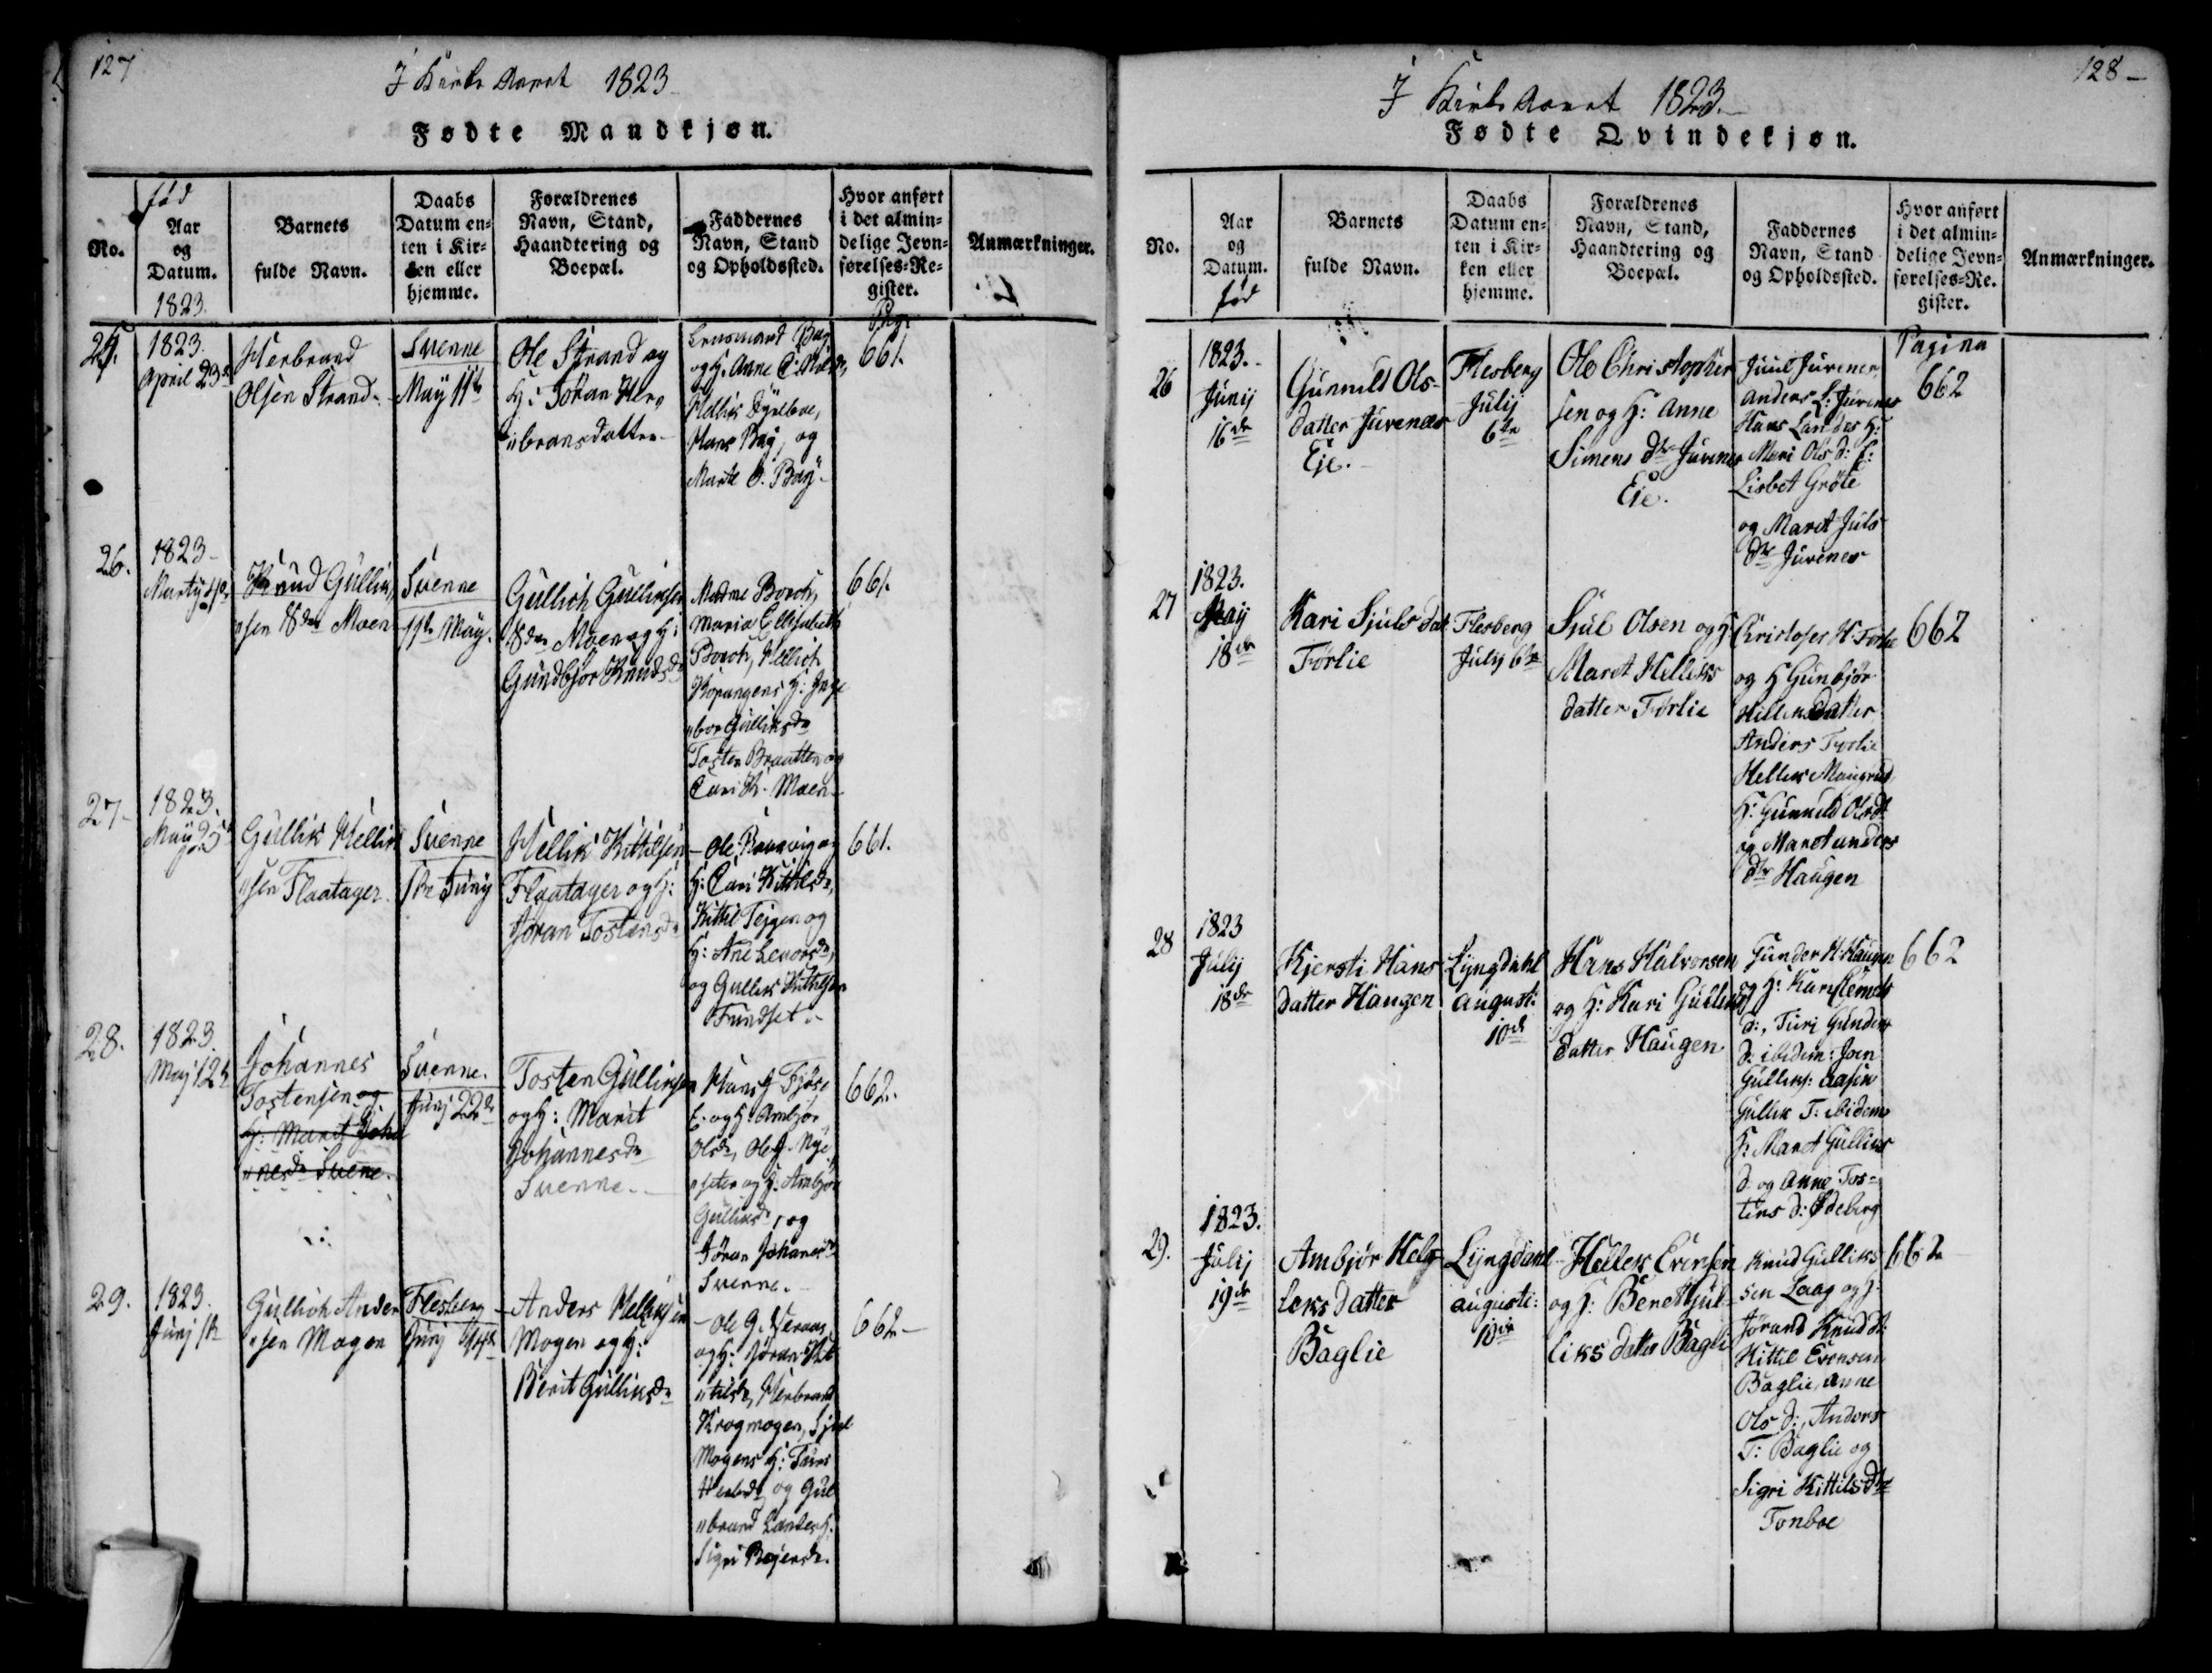 127
I Kirke Aaret 1823
Fødte Mandkjøn.
No.
fød
Aar
og
Datum.
1823
Barnets
fulde Navn.
Daabs
Datum en-
ten i Kir-
ken eller
hjemme.
Forældrenes
Navn, Stand,
Haandtering og
Boepæl.
Faddernes
Navn, Stand
og Opholdssted.
Hvor anført
i det almin-
delige Jevn-
førelses-Re-
gister.
Pag.
Anmærkninger.
25.
1823.
April 23
Herbrand
Olsen Strand
Svenne
May 11te
Ole Strand og
H: Joran Her
"bransdatter
Lensmand Bay
og H. Anne C.
Hellik
Hans Bay, og
Marte O. Bay
661.
26.
1823
Knud Gullik
"sen Moen
Svenne
11te May.
Gullich Gulliksen
Moen og H:
Gundbjør Knudsdr
Madme Borch,
Maria Ellisabeth
Borch, Hellich
H: Inge
"bor Gulliksdr
Tosten Braatten og
Cari K. Moen
661.
27
1823.
May 5
Gullik Hellik
"sen Flaatager
Svenne
1te Juny
Hellik Kittilsen
Flaatager og H:
Jøran Tostensdr
Ole og
H: Cari Kittilsdr,
Kittil Tejgen og
H: Ane
og Gullik Kittilsen
Fundset
661.
28.
1823.
Maj 12
Johannes
Tostensen og
H: Marit Joha
"nesdr Svene.
Svenne.
Junj 22de
Tosten Gulliksen
og H: Marit
Johannesdr
Svenne.
Hans
og H: Ambjør
Olsdr, Ole
"seter og H. Ambjør
Gulliksdr, og
Jøran Johanesdr
Svenne.
662.
29.
1823.
Junj 1te
Gullich Ander
"sen Mogen
Flesberg
Junj
Anders Helliksen
Mogen og H:
Berit Gulliksdr
Ole G.
og H: Jøran Kit
"tilsdr, Herbrand
Krogmogen,
Mogens H:
og Gul
"brand Landes H.
Sigri
662
128
I Kirke Aaret 1823.
Fødte Qvindekjøn.
No.
Aar
og
Datum.
fød
Barnets
fulde Navn.
Daabs
Datum en-
ten i Kir-
ken eller
hjemme.
Forældrenes
Navn, Stand,
Haandtering og
Boepæl.
Faddernes
Navn, Stand
og Opholdssted.
Hvor anført
i det almin-
delige Jevn-
førelses-Re-
gister.
Pagina
Anmærkninger.
26
1823.
Junij
16de
Gunnild Ols-
datter Juvenæs
Eje.
Flesberg
Julij
6te
Ole Christopher
sen og H: Anne
Simens dtr Juvenes
Eie.
Juul Juvenes
Anders Juvenes
Hans Landes H:
Mari Ols d:
Lisbet Grøte
og Maret Juls
dtr Juvenes
662
27
1823.
May
18de
Kari Sjuls dat
Førlie
Flesberg
Julij 6te
Sjul Olsen og H
Maret Helliks
datter Førlie
Kristofer H. Førlie
og H Gunbjør
Helliksdatter
Anders Førlie
Hellik
H: Gunnild Ols d:
og Maret anders
dtr Haugen
662
28
1823
Julij
18de
Kjersti Hans
datter Haugen
Lyngdahl
Augusti:
10de
Hans Halvorsen
og H: Kari Gulliks
datter Haugen
Gunder H: Haugen
og H: Kari Clemets
d:, Turi Gunders
d: ibidem: Joen
Gulliks: aasen
Gullik T: ibidem
H: Maret Gulliks
d: og Anne Tos-
tens d: Ødeberg
662
29.
1823.
Julij
19de
Ambjør Hel-
leks datter
Baglie
Lyngdahl
augusti:
10de
Hellek Evensen
og H: Benet Gul-
liks datter Bagli
Knud Gulliks
sen Laag og H:
Jørand Knud dt:
Kittil Evensen
Baglie, anne
Ols d:, Anders
T: Baglie og
Sigri Kittils dtr
Fonboe
662